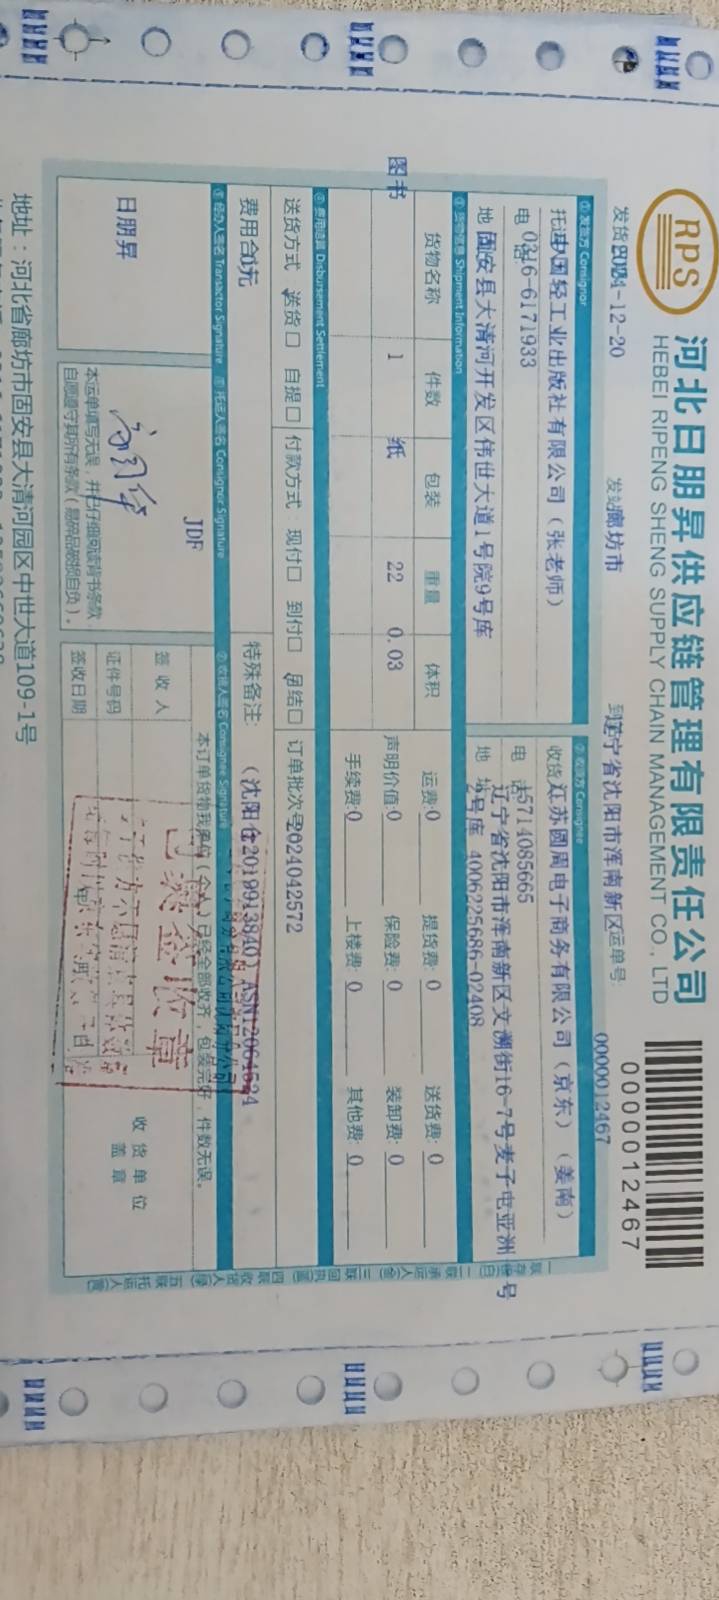 RPS
河北日朋昇供应链管理有限责任公司
HEBEI RIPENG SHENG SUPPLY CHAIN MANAGEMENT CO., LTD
0000012467
发货 2024-12-20 发站 廊坊市 到 辽宁省沈阳市浑南新区 运单号: 0000012467
①发货方 Consignor ②收货方 Consignee
托运 中国轻工业出版社有限公司（张老师） 收货 江苏圆周电子商务有限公司（京东）（姜南）
电话 0316-6171933 电话 15714085665
地 固安县大清河开发区伟世大道1号院9号库 地址 辽宁省沈阳市浑南新区文溯街16-7号麦子屯亚洲一号
2号库 4006225686-02408
③货物信息 Shipment Information
货物名称 件数 包装 重量 体积 运费:0 提货费: 0 送货费: 0
图书 1 纸 22 0.03 声明价值:0 保险费: 0 装卸费: 0
手续费:0 上楼费: 0 其他费: 0
④费用结算 Disbursement Settlement
送货方式 送货☐ 自提☐ 付款方式 现付☐ 到付☐ 月结☐ 订单批次号2024042572
费用合 0元 特殊备注: （沈阳仓2019913840）ASN12064524
⑤经办人签名 Transactor Signature ⑥托运人签名 Consignor Signature ⑦收货人签名 Consignee Signature
日朋昇
JDF
本订单货物我单位（个人）已经全部收齐，包装完好，件数无误。
签收人
收货单位
盖章
证件号码
签收日期
本运单填写无误，并已仔细阅读背书条款
自愿遵守其所有条款（易碎品破损自负）。
一联存根(白) 二联承运人(金) 三联回执(蓝) 四联收货人(绿) 五联托运人(黄)
地址：河北省廊坊市固安县大清河园区中世大道109-1号